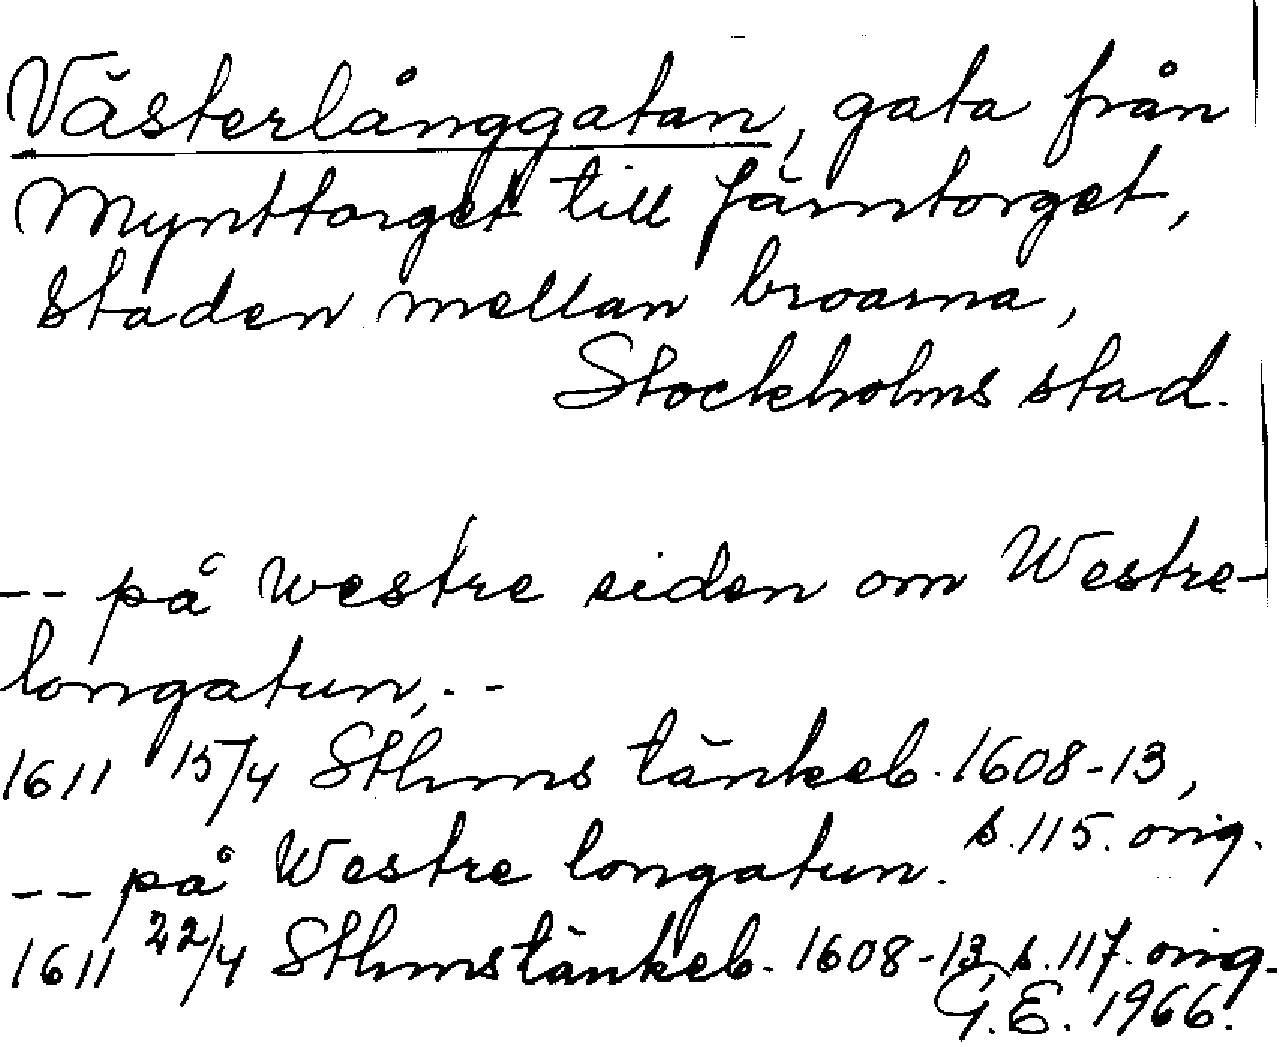 Västerlånggatan, gata från
Mynttorget till Järntorget,
Staden mellan broarna,
Stockholms stad.
-- på westre siden om Westre-
longatun, --
1611 15/4 Sthms tänkeb. 1608-13,
s. 115. orig.
-- på Westre longatun.
1611 22/4 Sthms tänkeb. 1608-13, s. 117. orig.
G. E. 1966.